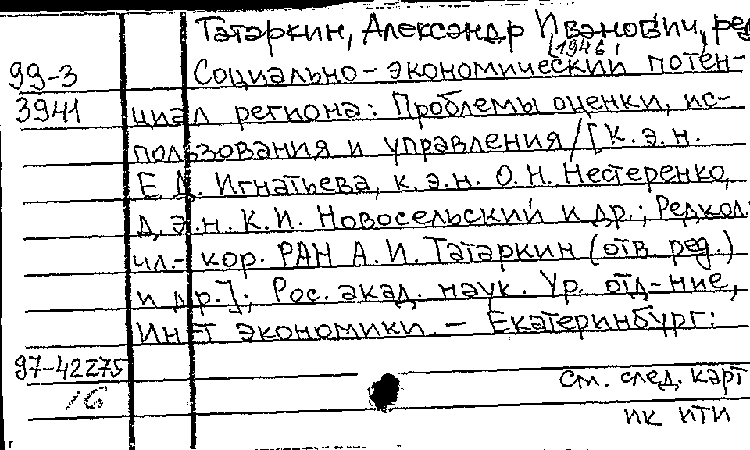 Татаркин, Александр Иванович, ред
(1946
99-3 Социально-экономический потен-
3941 циал региона: Проблемы оценки, ис-
пользования и управления/[к.э.н.
Е.Д. Игнатьева, к.э.н. О.Н. Нестеренко,
д.э.н. К.И. Новосельский и др.; Редкол:
чл.-кор. РАН А.И. Татаркин (отв ред.)
и др.]; Рос. акад. наук. Ур. отд-ние,
Ин-т экономики. - Екатеринбург:
97-42275
1б см. след. карт
ик ити